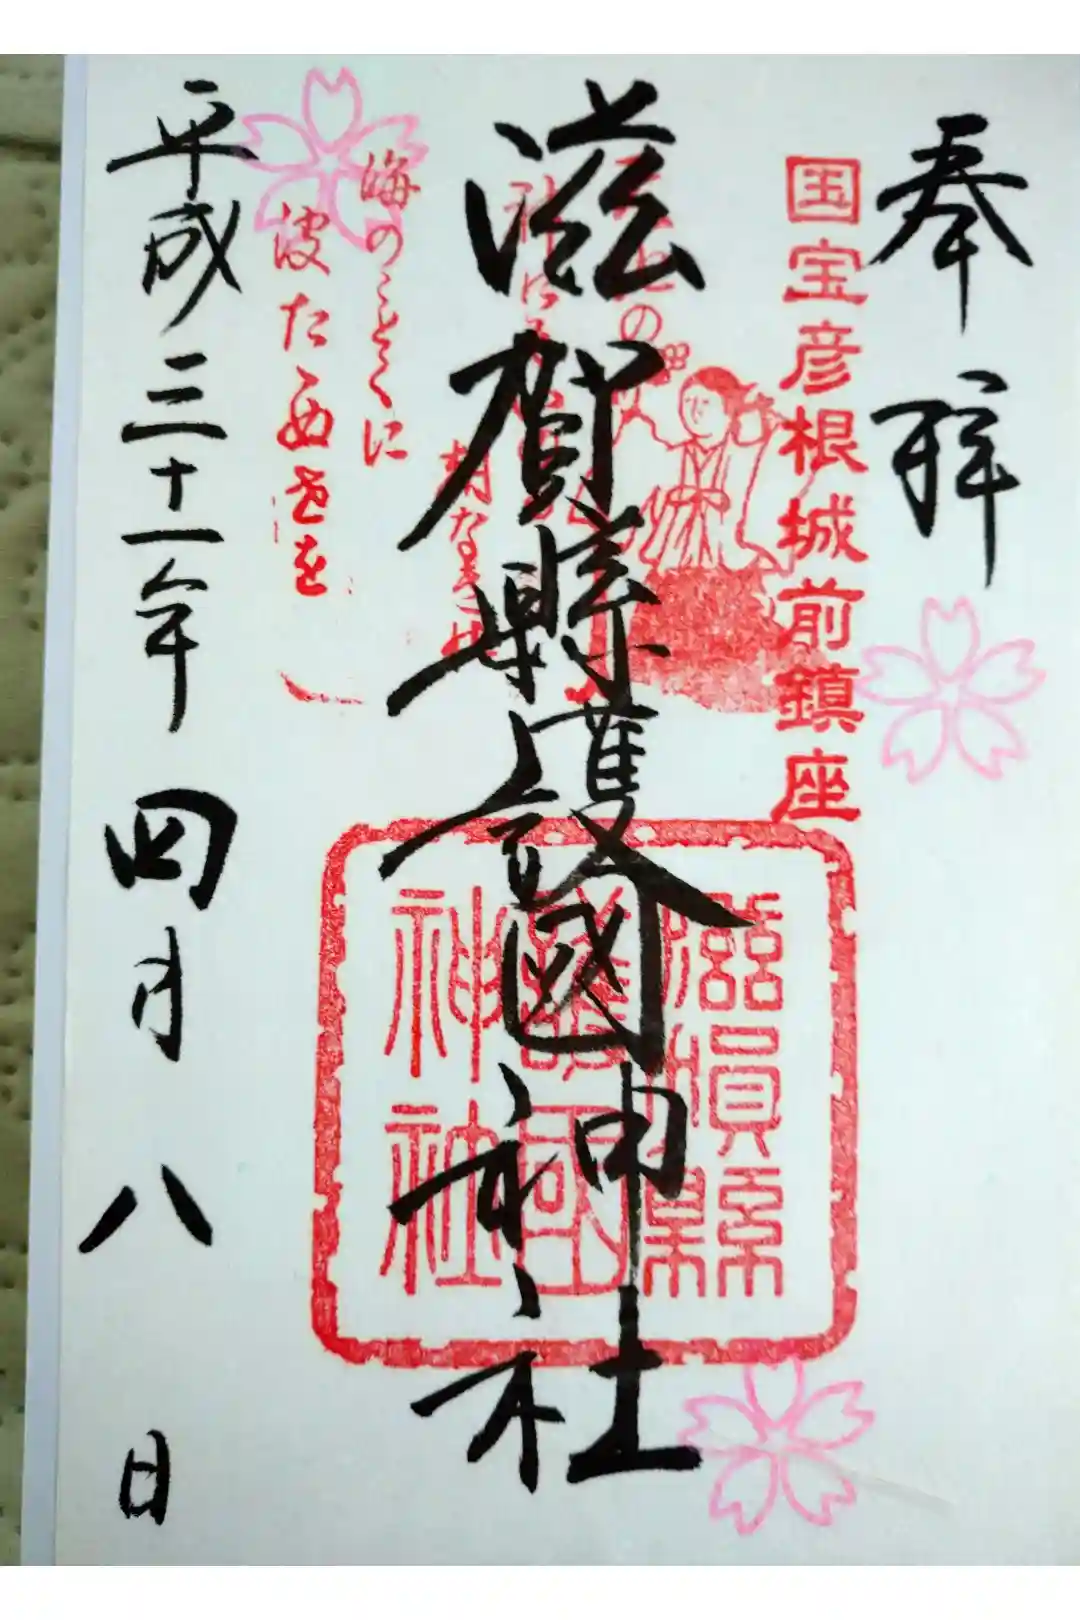 奉拝
国宝彦根城前鎮座
滋賀縣護國神社
天地の
神にそ
朝なき
海のことくに
波たゝぬ世を
滋賀縣
護國
神社
平成三十一年 四月 八 日